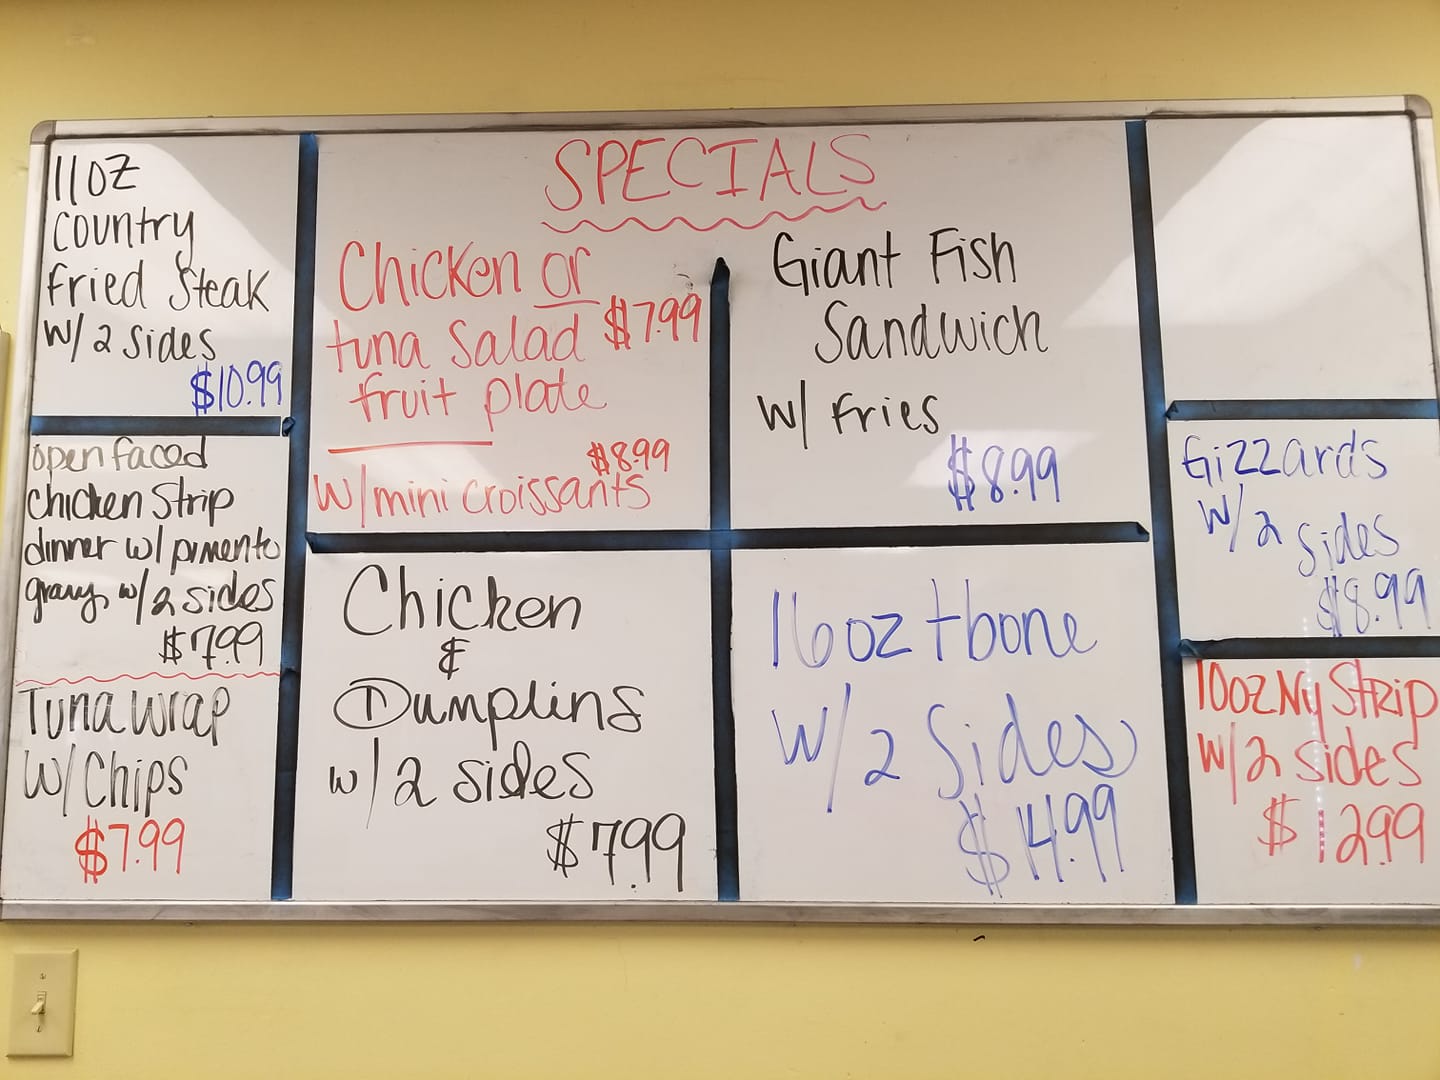 SPECIALS
11oz
Country
Fried Steak
w/ 2 sides
$10.99
open faced
chicken strip
dinner w/ pimento
gravy w/ 2 sides
$7.99
Tuna wrap
w/ Chips
$7.99
Chicken or
tuna salad $7.99
fruit plate
$8.99
w/ mini croissants
Giant Fish
Sandwich
w/ Fries
$8.99
Chicken
&
Dumplins
w/ 2 sides
$7.99
16oz tbone
w/ 2 Sides
$14.99
Gizzards
w/ 2
sides
$8.99
10oz Ny Strip
w/ 2 sides
$12.99